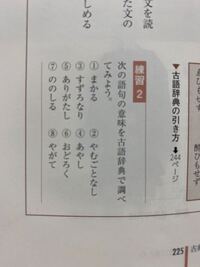 ▼古語辞典の引き方 ➡244ページ
練習 2
次の語句の意味を古語辞典で調べ
てみよう。
① まかる ② やむごとなし
③ すずろなり ④ あやし
⑤ ありがたし ⑥ おどろく
⑦ ののしる ⑧ やがて
文を読
た文の
しめる
225